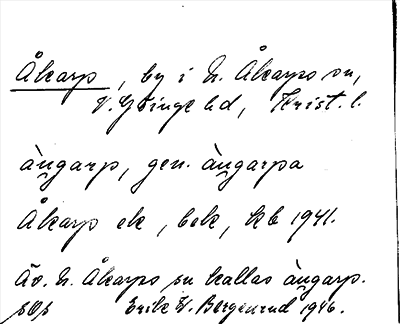 Åkarp, by i N. Åkarps sn,
V. Göinge hd, Krist. l.
àŋgarp, gen. àŋgarpa
Åkarp ek, bek, kb 1941.
Äv. N. Åkarps sn kallas àŋgarp.
Erik W. Bergenrud 1946.